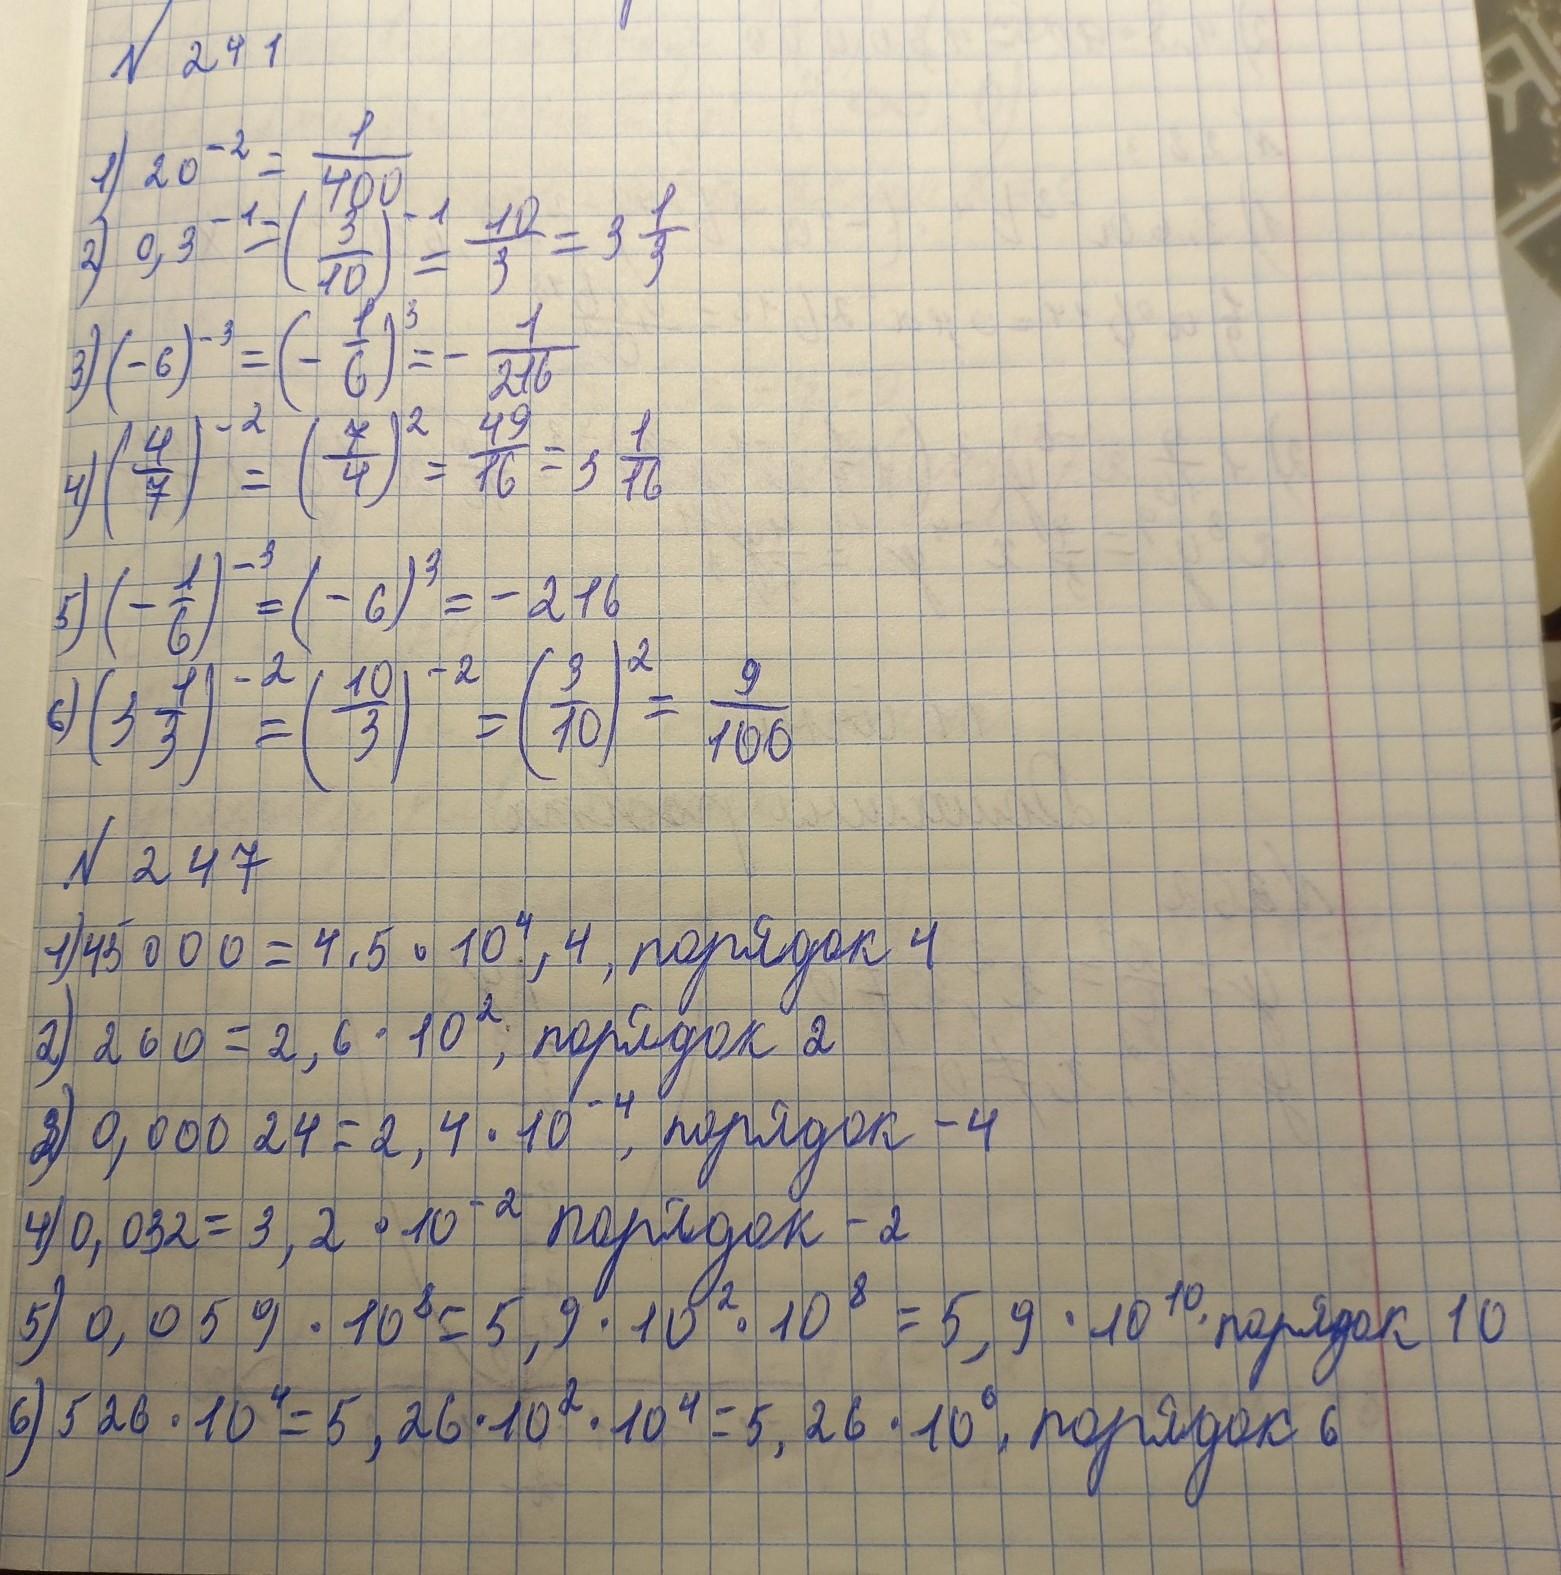 № 241
1) 20⁻² = 1/400
2) 0,3⁻¹ = (3/10)⁻¹ = 10/3 = 3 1/3
3) (-6)⁻³ = (- 1/6)³ = - 1/216
4) (4/7)⁻² = (7/4)² = 49/16 = 3 1/16
5) (- 1/6)⁻³ = (-6)³ = - 216
6) (3 1/3)⁻² = (10/3)⁻² = (3/10)² = 9/100
№ 247
1) 45 000 = 4,5 · 10⁴, 4, порядок 4
2) 260 = 2,6 · 10², порядок 2
3) 0,00024 = 2,4 · 10⁻⁴, порядок -4
4) 0,032 = 3,2 · 10⁻² порядок -2
5) 0,059 · 10⁸ = 5,9 · 10² · 10⁸ = 5,9 · 10¹⁰. порядок 10
6) 526 · 10⁴ = 5,26 · 10² · 10⁴ = 5,26 · 10⁶, порядок 6